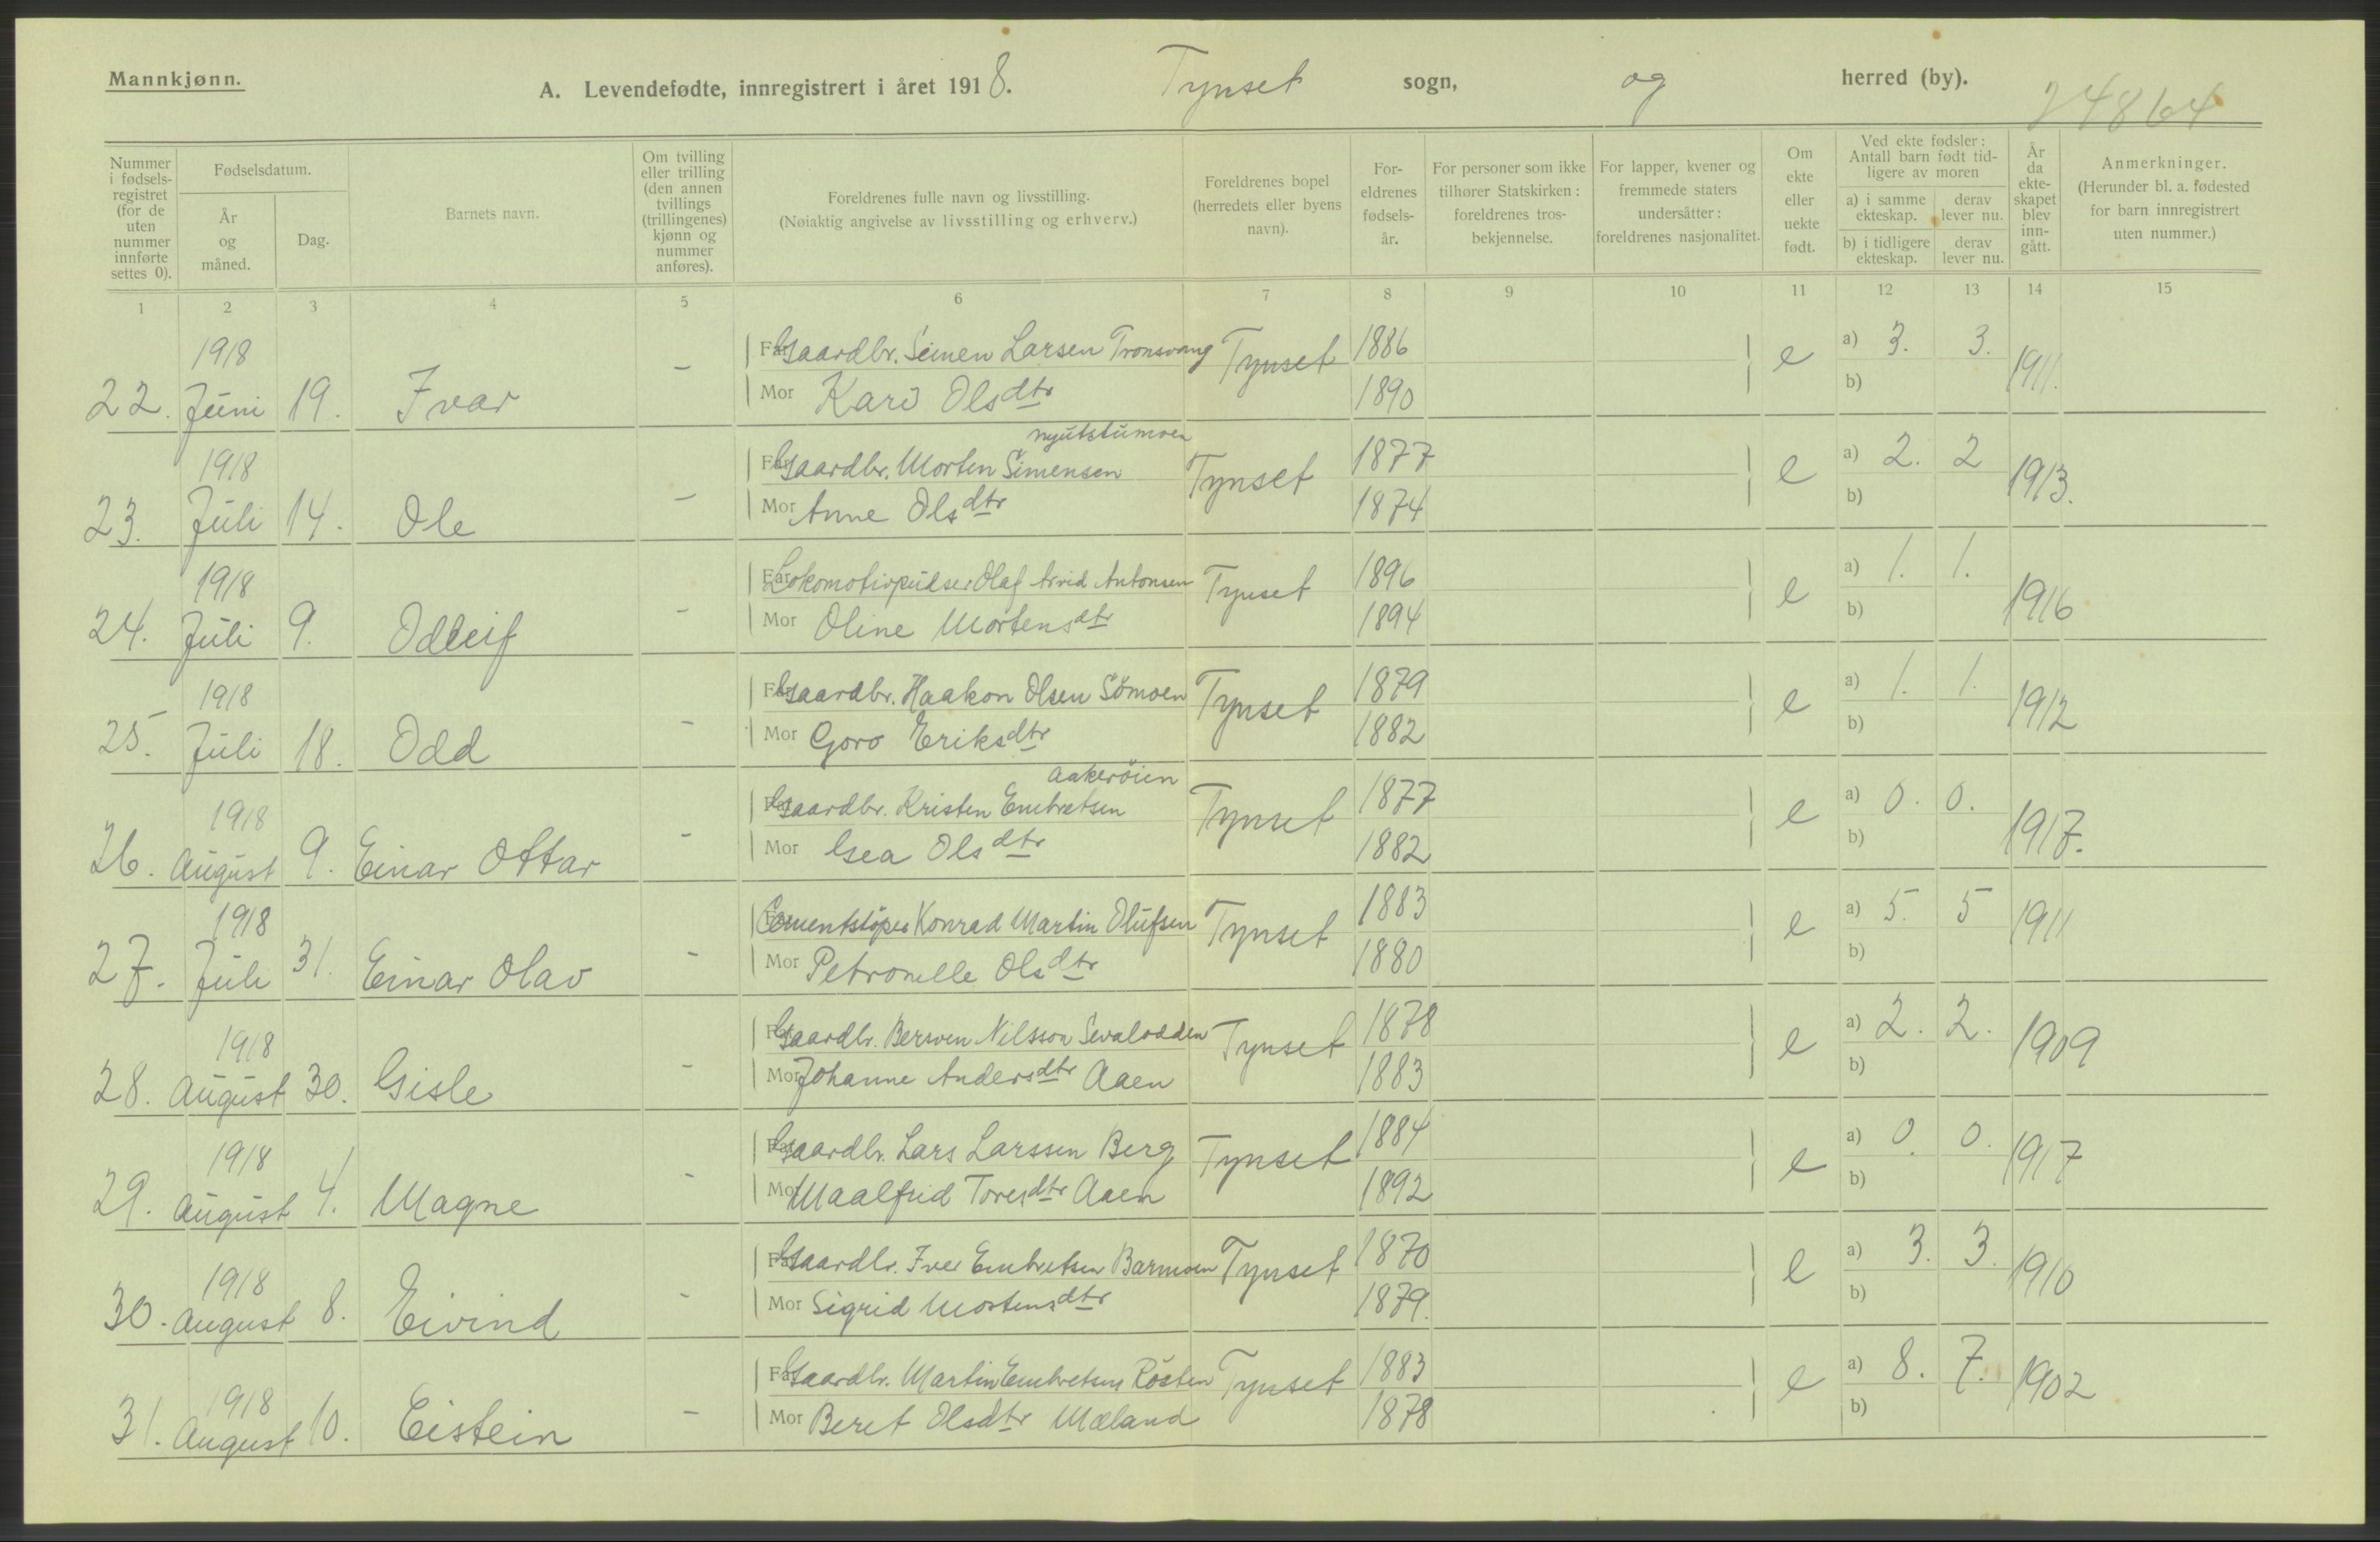 Mannkjønn.
A. Levendefødte, innregistrert i året 1918. Tynset sogn, og herred (by).
24864
Nummer i fødselsregistret (for de uten nummer innførte settes 0).
Fødselsdatum.
År og måned.
Dag.
Barnets navn.
Om tvilling eller trilling (den annen tvillings (trillingenes) kjønn og nummer anføres).
Foreldrenes fulle navn og livsstilling.
(Nøiaktig angivelse av livsstilling og erhverv.)
Foreldrenes bopel (herredets eller byens navn).
Foreldrenes fødselsår.
For personer som ikke tilhører Statskirken: foreldrenes trosbekjennelse.
For lapper, kvener og fremmede staters undersåtter: foreldrenes nasjonalitet.
Om ekte eller uekte født.
Ved ekte fødsler: Antall barn født tidligere av moren
a) i samme ekteskap. derav lever nu.
b) i tidligere ekteskap. derav lever nu.
År da ekteskapet blev inngått.
Anmerkninger. (Herunder bl. a. fødested for barn innregistrert uten nummer.)
1 2 3 4 5 6 7 8 9 10 11 12 13 14 15
1918 Far Gaardbr. Simen Larsen Tronsvang Tynset 1886 e a) 3. 3. 1911.
22. Juni 19. Ivar - Mor Kari Olsdtr 1890 b)
nyutstumoen
1918 Far Gaardbr. Morten Simensen Tynset 1877 e a) 2. 2 1913.
23. Juli 14. Ole - Mor Anne Olsdtr 1874 b)
1918 Far Lokomotivpudser Olaf Arvid Antonsen Tynset 1896 e a) 1. 1. 1916
24. Juli 9. Odleif - Mor Oline Mortensdtr 1894 b)
1918 Far Gaardbr. Haakon Olsen Sömoen Tynset 1879 e a) 1. 1. 1912
25. Juli 18. Odd - Mor Goro Eriksdtr 1882 b)
Aakeröien
1918 Far Gaardbr. Kristen Embretsen Tynset 1877 e a) 0. 0. 1917.
26. August 9. Einar Ottar - Mor Gea Olsdtr 1882 b)
1918 Far Cementstöper Konrad Martin Olufsen Tynset 1883 e a) 5. 5 1911
27. Juli 31. Einar Olav - Mor Petronelle Olsdtr 1880 b)
1918 Far Gaardbr. Bersven Nilsson Sevalodden Tynset 1878 e a) 2. 2. 1909
28. August 30. Gisle - Mor Johanne Andersdtr Aaen 1883 b)
1918 Far Gaardbr. Lars Larssen Berg Tynset 1884 e a) 0. 0. 1917
29. August 4. Magne - Mor Maalfrid Toresdtr Aaen 1892 b)
1918 Far Gaardbr. Iver Embretsen Barmoen Tynset 1870 e a) 3. 3. 1910
30. August 8. Eivind - Mor Sigrid Mortensdtr 1879. b)
1918 Far Gaardbr. Martin Embretsen Rösten Tynset 1883 e a) 8. 7. 1902
31. August 10. Eistein - Mor Beret Olsdtr Mæland 1878 b)